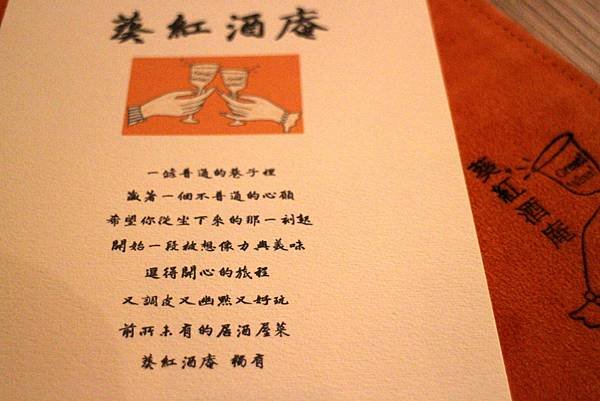 葵紅酒庵
一條普通的巷子裡
藏著一個不普通的心願
希望你從坐下來的那一刻起
開始一段被想像力與美味
逗得開心的旅程
又調皮又幽默又好玩
前所未有的居酒屋菜
葵紅酒庵 獨有
葵紅酒庵